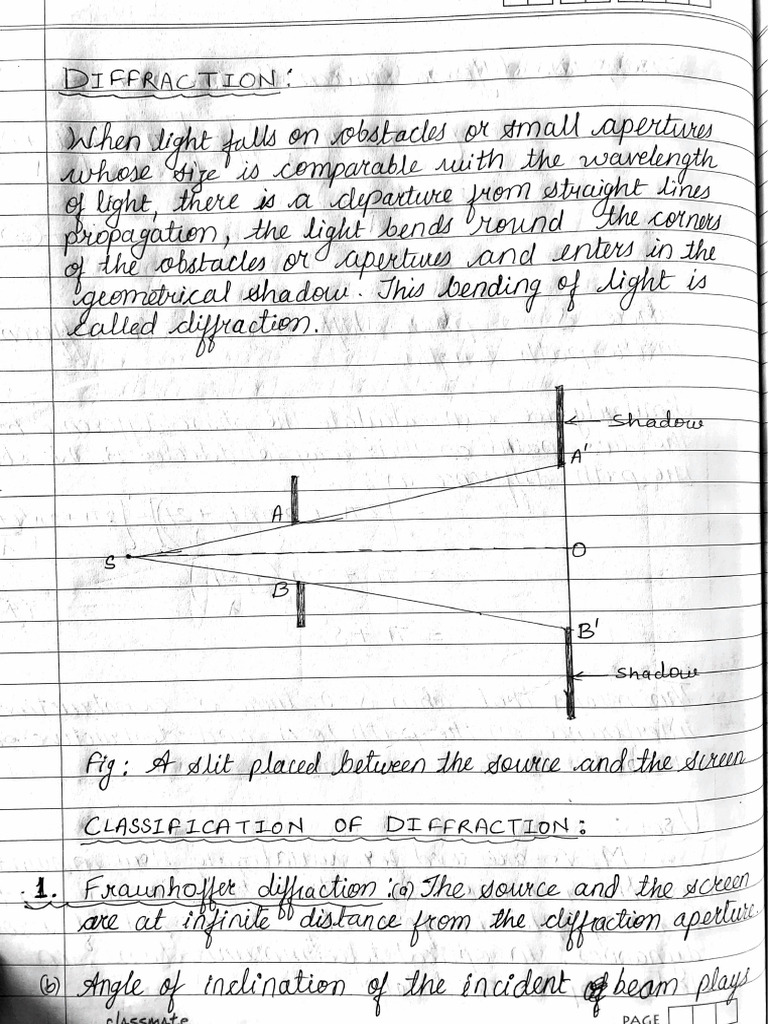 DIFFRACTION:
When light falls on obstacles or small apertures
whose size is comparable with the wavelength
of light, there is a departure from straight lines
propagation, the light bends round the corners
of the obstacles or apertures and enters in the
geometrical shadow. This bending of light is
called diffraction.
shadow
A'
A
S
O
B
B'
shadow
fig: A slit placed between the source and the screen
CLASSIFICATION OF DIFFRACTION:
1. Fraunhoffer diffraction: (a) The source and the screen
are at infinite distance from the diffraction aperture.
(b) Angle of inclination of the incident beam plays
classmate
PAGE